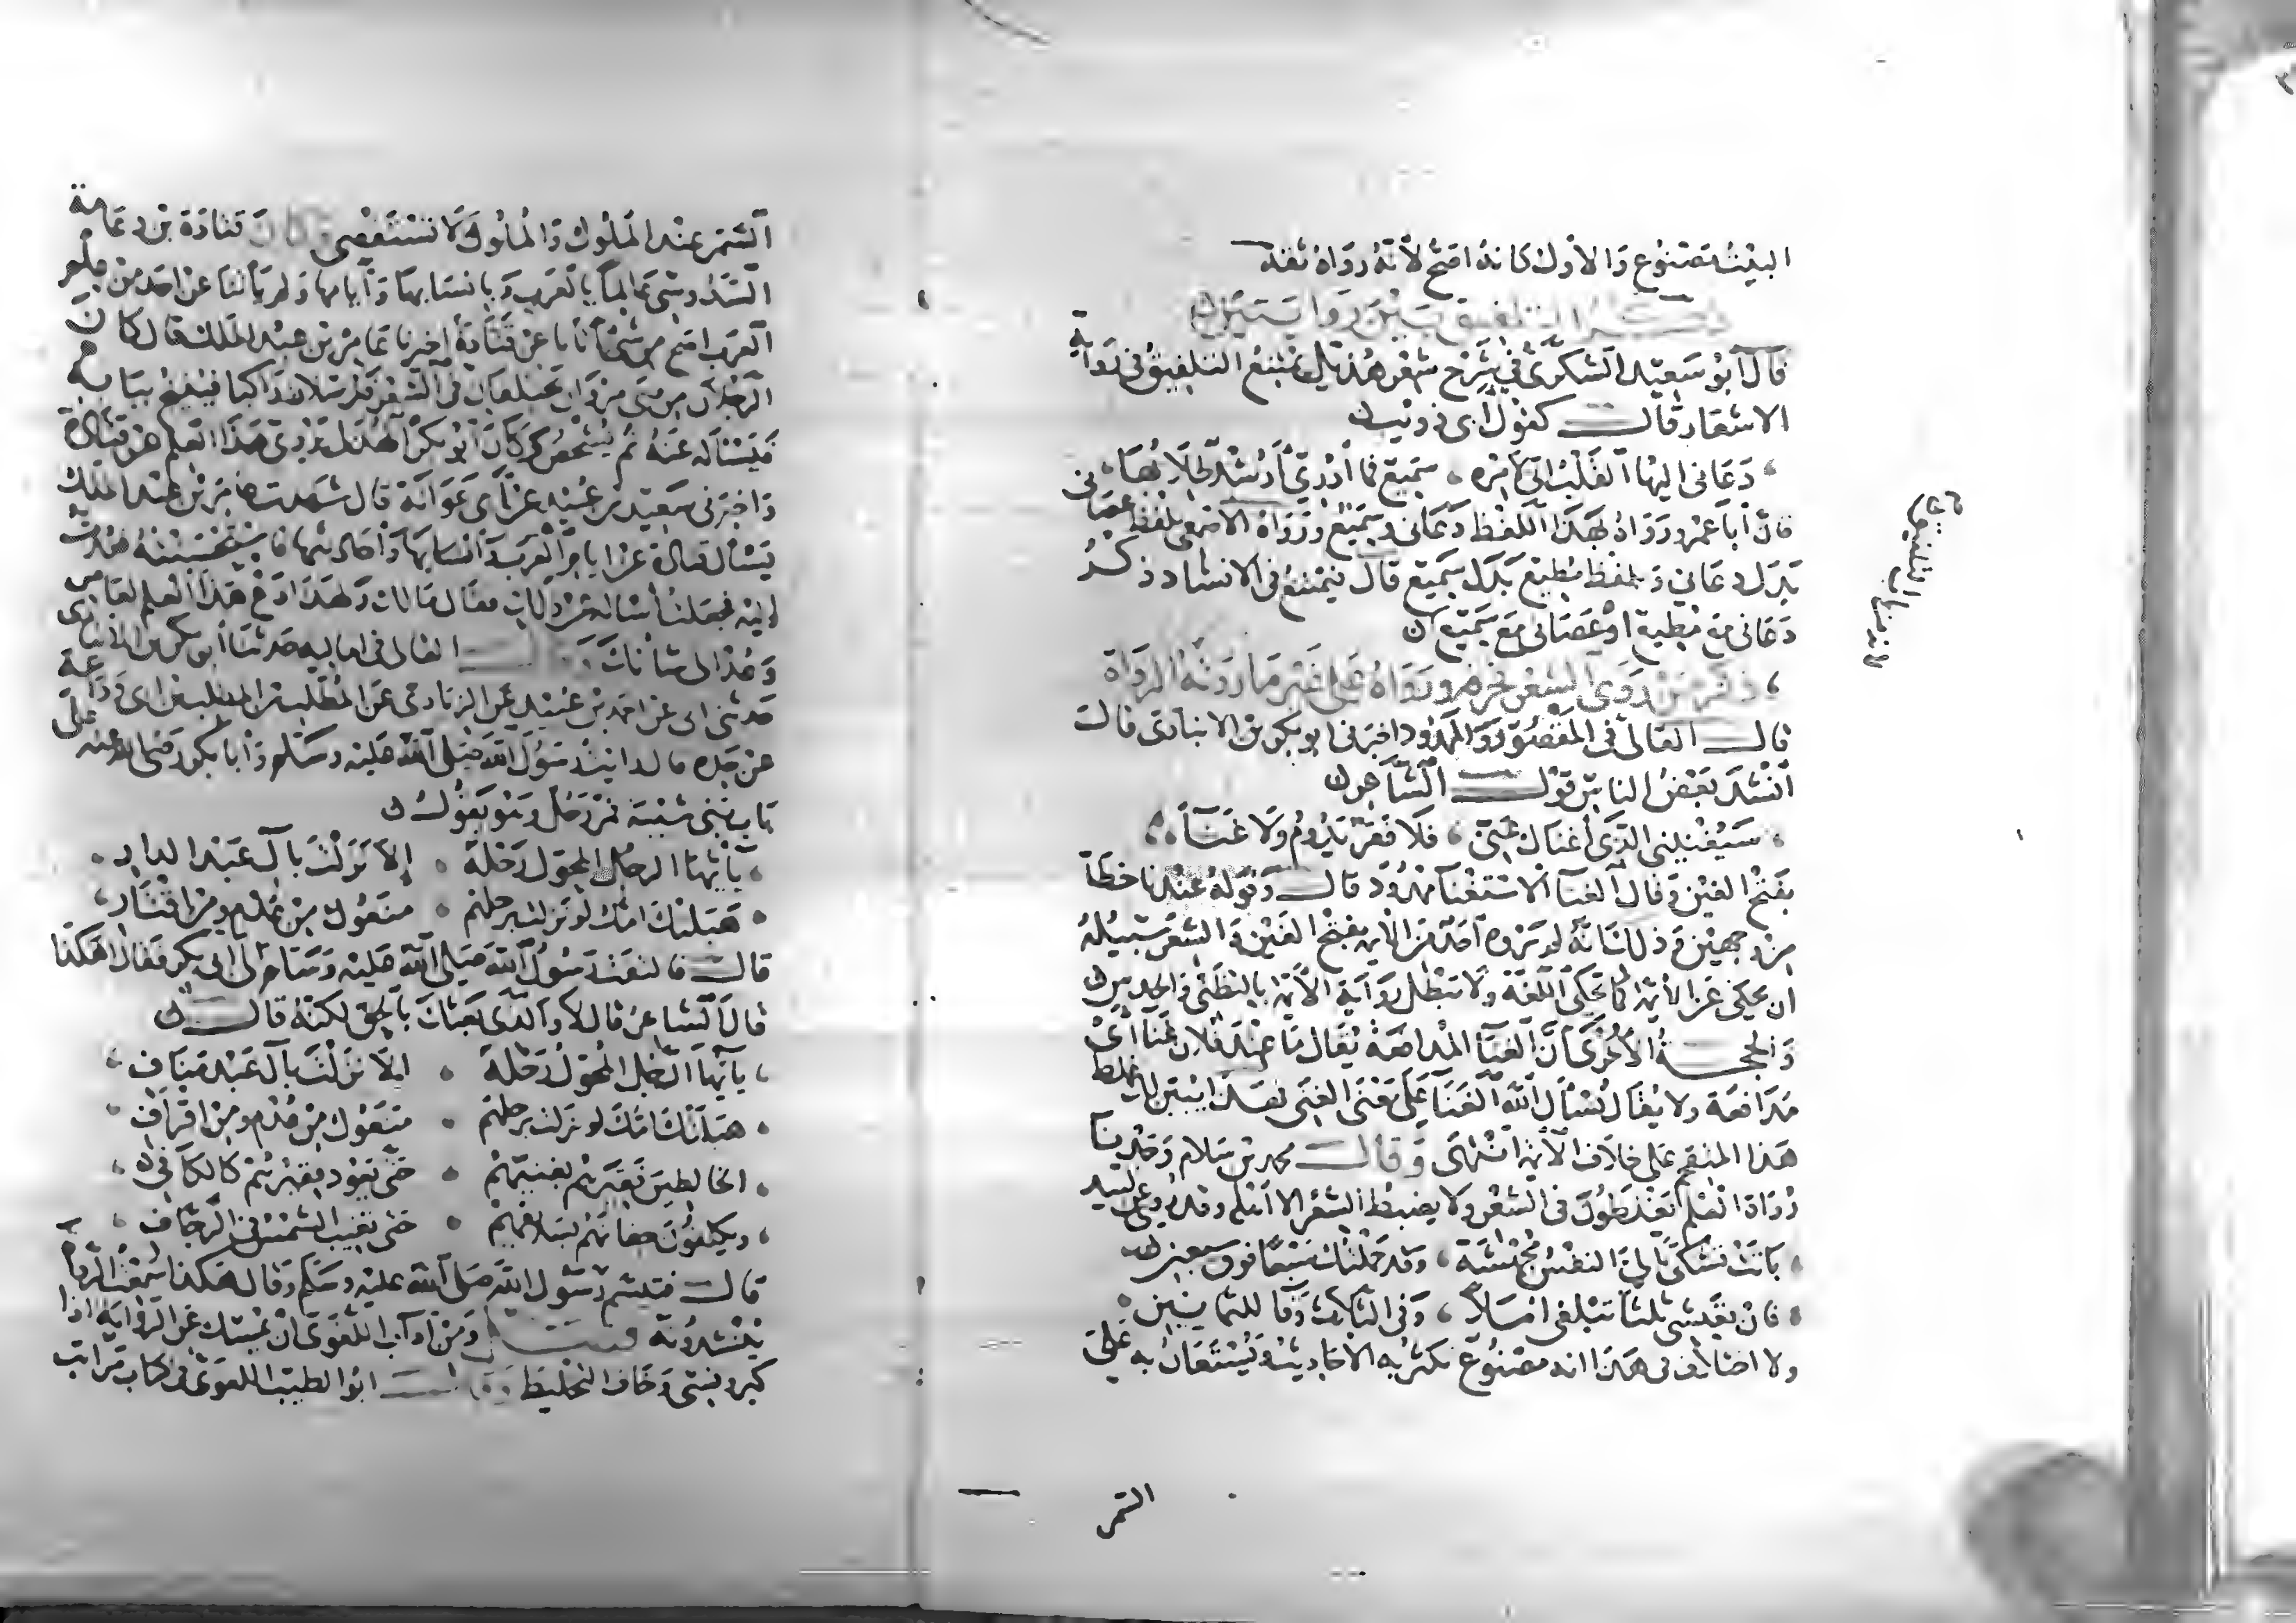 البيت مصنوع والأول كأنه أصح لأنه رواه ثقة
ذكر التلفيق بين روايتين
قال أبو سعيد السكري في شرح شعر هذيل يمتنع التلفيق في رواية
الاشعار قال كقول أبي ذؤيب
دعاني إليها القلب إني لأمره سميع فما أدري أرشد طلابها
فان أبا عمرو رواه بهذا اللفظ دعاني وسميع ورواه الاصمعي بلفظ عصاني
بدل دعاني وبلفظ مطيع بدل سميع قال فيمتنع في الانشاد ذكر
دعاني مع مطيع أو عصاني مع سميع
ذكر من روى الشعر فحرفه ورواه على غير ما روته الرواة
قال القالي في المقصور والممدود اخبرني ابو بكر بن الانباري قال
أنشد بعض الناس قول الشاعر
سيغنيني الذي أغناك عني فلا فقر يدوم ولا غناء
بفتح الغين وقال الغناء الاستغناء ممدود قال وقوله عندنا خطأ
من وجهين وذلك أنه لم يروه أحد من الأيمة بفتح الغين والشعر سبيله
ان يحكى عن الأيمة كما تحكى اللغة ولا تبطل رواية الأيمة بالتظني والحدس
والحجة الأخرى أن الغناء المدافعة يقال ما عند فلان غناء أي
مدافعة ولا يقال نسأل الله الغناء على معنى الغنى فهذا يبين لك غلط
هذا المتقحم على خلاف الأيمة انتهى وقال محمد بن سلام وجدنا
رواة العلم يغلطون في الشعر ولا يضبط الشعر الا أهله وقد روي عن لبيد
باتت تشكى إلي النفس مجهشة وقد حملتك سبعا فوق سبعين
فان تعيشي ثلثا تبلغي املا وفي الثلاث وفاء للثمانين
ولا اختلاف في هذا انه مصنوع تكثر به الاحاديث ويستعان به على
السمر
السمر عند الملوك والملوك لا تستقصي وكان قتادة بن دعامة
السدوسي عالما بالعرب وبانسابها وأيامها ولم يأتنا عن احد من علم
العرب اصح من شيء أتانا عن قتادة أخبرنا عامر بن عبد الملك قال كان
الرجلان من بني مروان يختلفان في الشعر فيرسلان راكبا فينيخ ببابه
فيسأله عنه ثم يشخص وكان أبو بكر الهذلي يروي هذا العلم عن قتادة
واخبرني سعيد بن عبيد عن أبي عوانة قال شهدت عامر بن عبد الملك
يسأل قتادة عن ايام العرب وأنسابها وأحاديثها فاستحسنته فعدت
اليه فجعلت أساله عن ذلك فقال مالك ولهذا دع هذا العلم لعامر
وعد الى شأنك وقال القالي في اماليه حدثنا أبو بكر بن الانباري
حدثني ابي عن احمد بن عبيد عن الزيادي عن المطلب بن المطلب بن ابي وداعة
عن جده قال رايت رسول الله صلى الله عليه وسلم وأبا بكر رضي الله عنه على
باب بني شيبة فمر رجل وهو يقول
يأيها الرجل المحول رحله إلا نزلت بآل عبد الدار
هبلتك امك لو نزلت برحلهم منعوك من عدم ومن اقتار
قال فالتفت رسول الله صلى الله عليه وسلم إلى ابي بكر فقال أهكذا
قال الشاعر قال لا والذي بعثك بالحق لكنه قال
يأيها الرجل المحول رحله الا نزلت بآل عبد مناف
هبلتك امك لو نزلت برحلهم منعوك من عدم ومن اقراف
الخالطين فقيرهم بغنيهم حتى يعود فقيرهم كالكافي
ويكللون جفانهم بسديفهم حتى تغيب الشمس في الرجاف
قال فتبسم رسول الله صلى الله عليه وسلم وقال هكذا سمعت الرواة
ينشدونه ومن آداب اللغوي ان يمسك عن الرواية اذا
كبر ونسي وخاف التخليط قال ابو الطيب اللغوي في كتاب مراتب